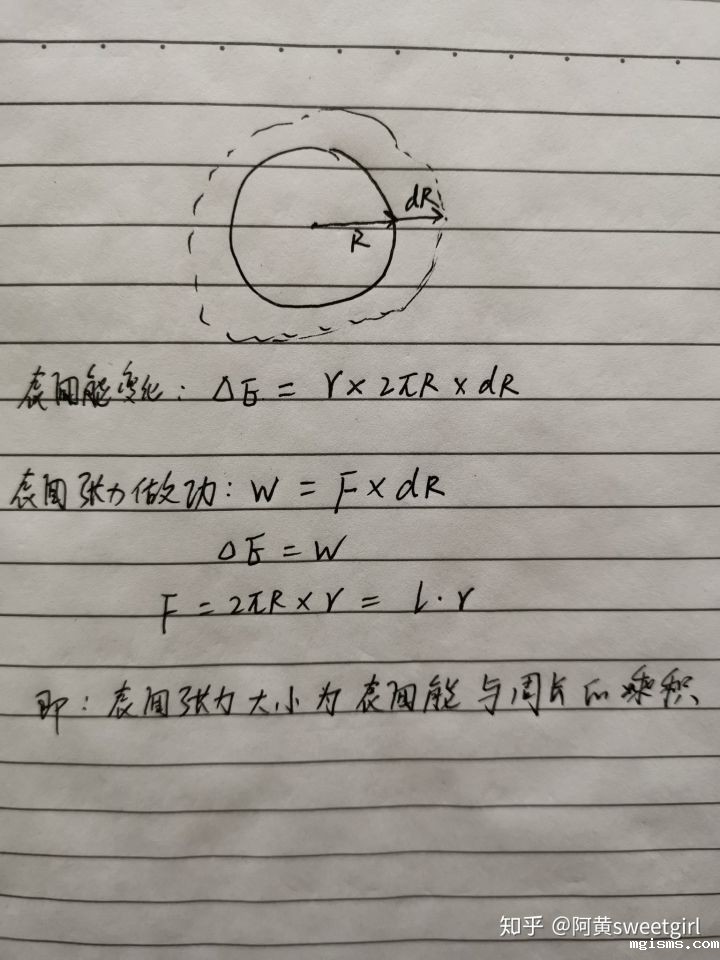 dR
R
表面能变化: ΔE = γ × 2πR × dR
表面张力做功: W = F × dR
ΔE = W
F = 2πR × γ = l·γ
即: 表面张力大小为表面能与周长的乘积
知乎 @阿黄sweetgirl
mgisms.com